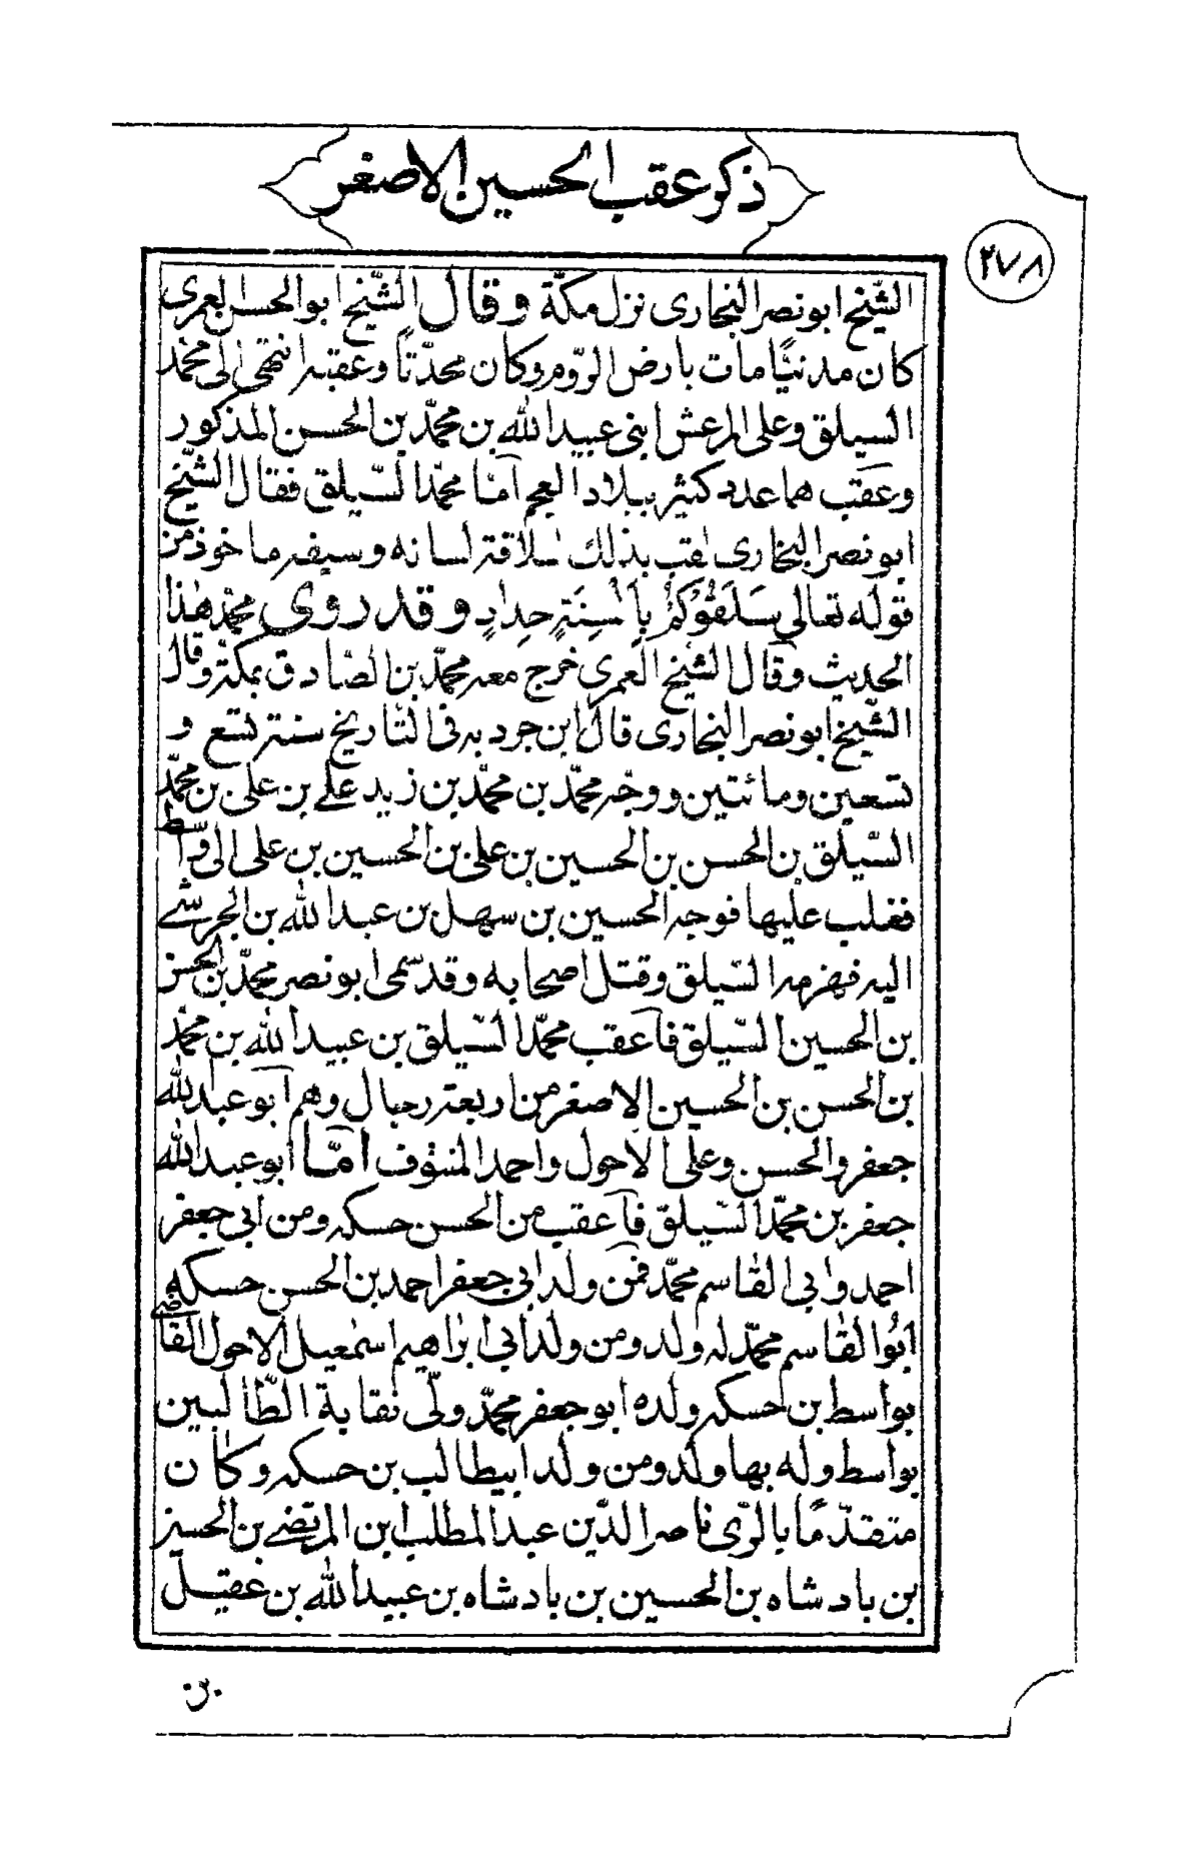 ذكر عقب الحسين الاصغر
٢٧٨
الشّيخ ابونصر البخاری نزل مكّة وقال الشّيخ ابوالحسن العمری
كان مدنيًّا مات بارض الرّوم وكان محدّثًا وعقبه انتهی الی محمّد
السيلق وعلی المرعش ابنی عبيدالله بن محمّد بن الحسن المذكور
وعقب هما عدد كثير ببلاد العجم امّا محمّد السّيلق فقال الشّيخ
ابونصر البخاری لقب بذلك لسلاقة لسانه وسيفه ماخوذ من
قوله تعالی سَلَقُوكُمْ بِاَلْسِنَةٍ حِدادٍ وقد روی محمّد هذا
الحديث وقال الشّيخ العمری خرج معه محمّد بن الصّادق بمكّة وقال
الشّيخ ابونصر البخاری قال ابن جرد به فی التّاريخ سنة تسع و
تسعين ومائتين ووجّه محمّد بن محمّد بن زيد علی بن علی بن محمّد
السّيلق بن الحسن بن الحسين بن علی بن الحسين بن علی الی واسط
فغلب عليها فوجه الحسين بن سهل بن عبدالله بن الجرشے
اليه فهزمه السّيلق وقتل اصحابه وقد سمی ابونصر محمّد بن الحسن
بن الحسين السّيلق فاعقب محمّد السّيلق بن عبيدالله بن محمّد
بن الحسن بن الحسين الاصغر من اربعة رجال وهم ابو عبدالله
جعفر والحسن وعلی الاحول واحمد المنتوف امّا ابوعبدالله
جعفر بن محمّد السّيلق فاعقب من الحسن حسكه ومن ابی جعفر
احمد وابی القاسم محمّد فمن ولد ابی جعفر احمد بن الحسن حسكه
ابوالقاسم محمّد له ولد ومن ولد ابی ابراهيم اسمعيل الاحول القاضی
بواسط بن حسكه ولده ابو جعفر محمّد ولّی نقابة الطّالبين
بواسط وله بها ولد ومن ولد ابيطالب بن حسكه وكان
متقدّمًا بالرّی ناصر الدّين عبدالمطلب ابن المرتضے بن الحسين
بن بادشاه بن الحسين بن بادشاه بن عبيدالله بن عقيل
بن